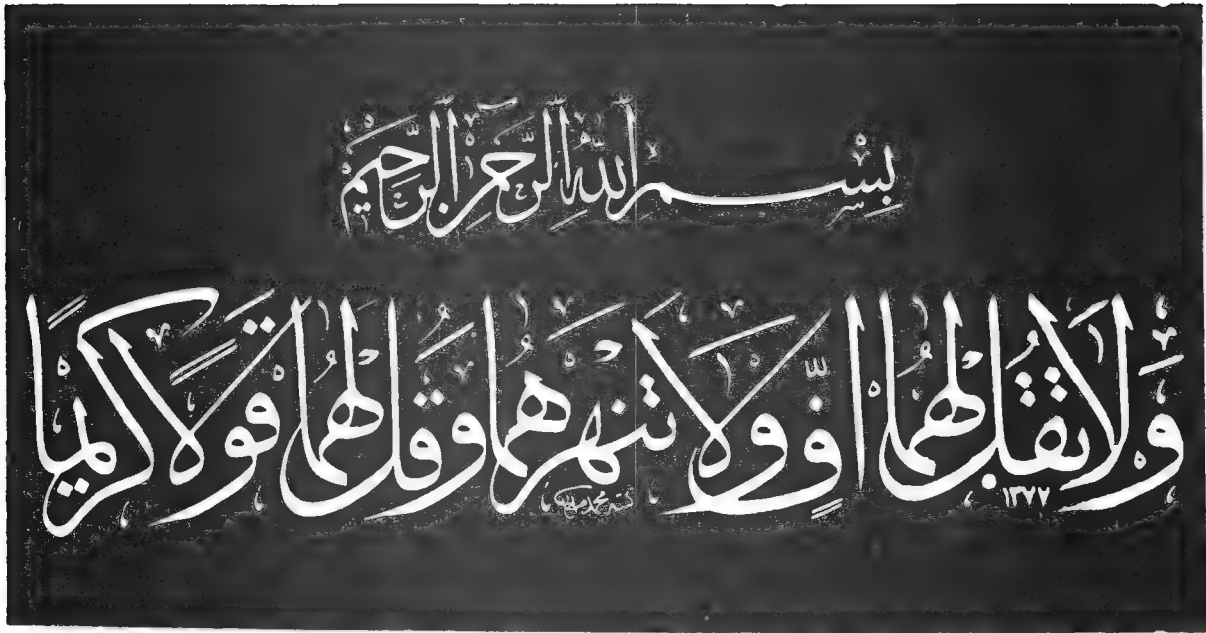 بِسْمِ اللهِ الرَّحْمٰنِ الرَّحِيمِ
وَلَا تَقُلْ لَهُمَا اُفٍّ وَلَا تَنْهَرْهُمَا وَقُلْ لَهُمَا قَوْلًا كَرِيمًا
١٣٧٧